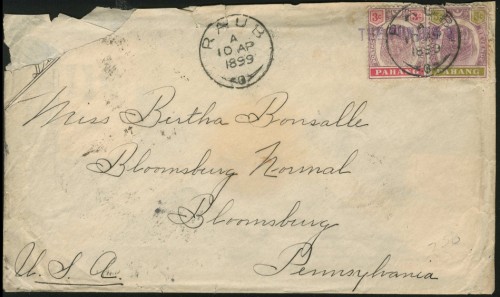 RAUB
A
10 AP
1899
3c
3c
PAHANG
PAHANG
1899
Miss Bertha Bonsalle
Bloomsburg Normal
Bloomsburg
Pennsylvania
U. S. A.